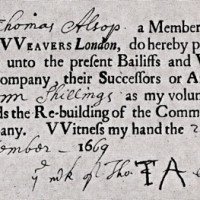 Thomas Alsop a Member
VVEAVERS London, do hereby p
unto the present Bailiffs and V
ompany, their Successors or A
Shillings as my volun
ds the Re-building of the Comm
any. VVitness my hand the 2
ember - 1669
ye mk of Tho: TA